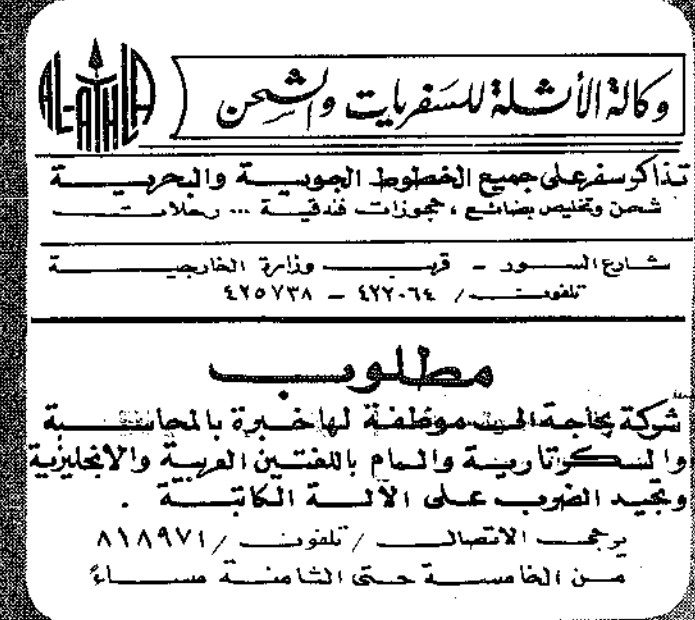 AL-ATHLA
وكالة الأثلة للسفريات والشحن
تذاكر سفر على جميع الخطوط الجوية والبحرية
شحن وتخليص بضائع ، حجوزات فندقية ... رحلات
شارع السور - قرب وزارة الخارجية
تلفون / ٤٢٢٠٦٤ - ٤٢٥٧٣٨
مطلوب
شركة بحاجة الى موظفة لها خبرة بالمحاسبة
والسكرتارية والمام باللغتين العربية والانجليزية
وتجيد الضرب على الآلة الكاتبة .
يرجى الاتصال / تلفون / ٨١٨٩٧١
من الخامسة حتى الثامنة مساءً